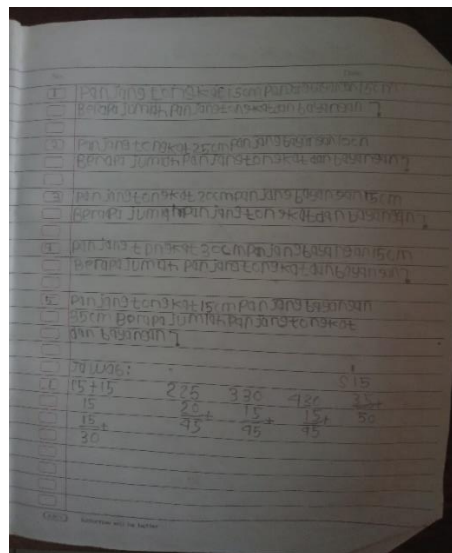 No. Date
1 Panjang tongkat 15cm Panjang bayangan 15cm
Berapa Jumlah Panjang tongkat dan bayangan?
2 Panjang tongkat 25cm Panjang bayangan 20cm
Berapa Jumlah Panjang tongkat dan bayangan?
3 Panjang tongkat 30cm Panjang bayangan 15cm
Berapa Jumlah Panjang tongkat dan bayangan?
4 Panjang tongkat 30cm Panjang bayangan 15cm
Berapa Jumlah Panjang tongkat dan bayangan?
5 Panjang tongkat 15cm Panjang bayangan
35cm Berapa Jumlah Panjang tongkat
dan bayangan?
Jawab:
15+15 225 330 430 515
15 20 15 15+ 35+
15+ 45 45 45 50
30